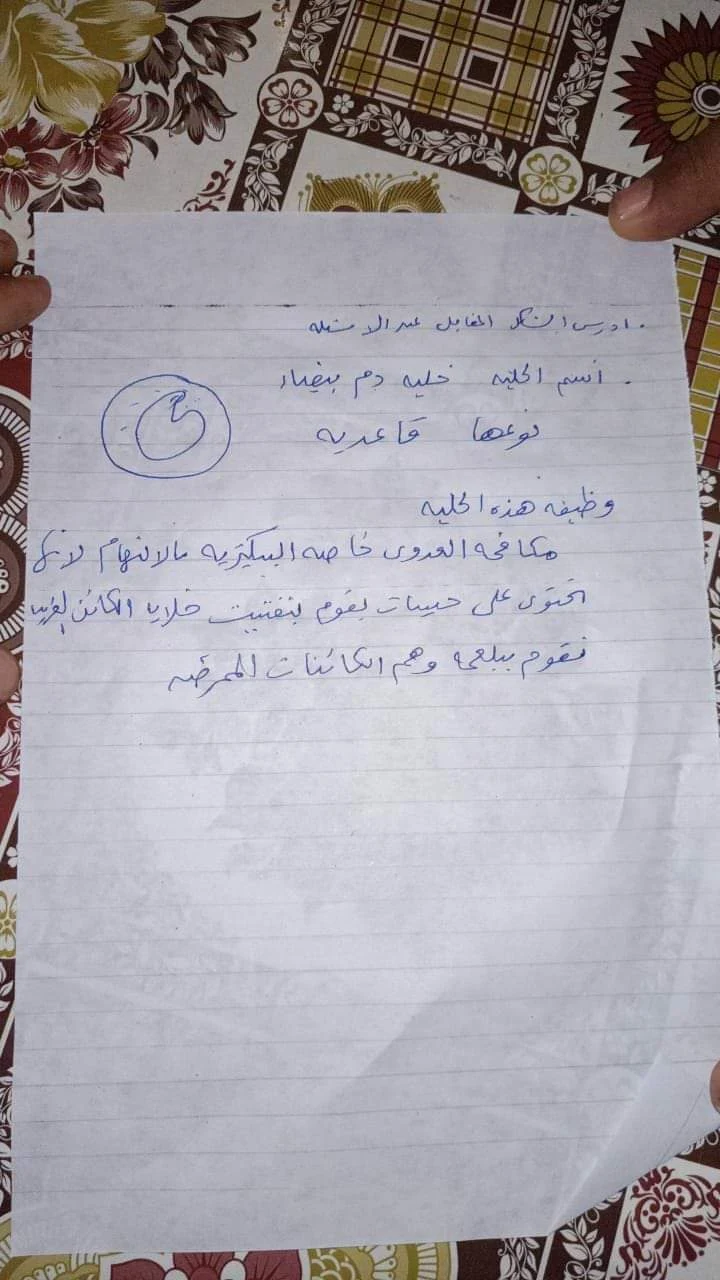 ادرس الشكل المقابل عبد الاسئله
. اسم الخليه خليه دم بيضاء
نوعها قاعديه
وظيفه هذه الخليه
مكافحه العدوى خاصه البيكتريه بالالتهام لانها
تحتوى على حبيبات يقوم بتفتيت خلايا الكائن الغريب
تقوم ببلعمه وهم الكائنات الممرضه